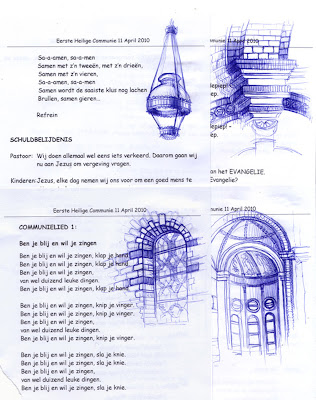 Eerste Heilige Communie 11 April 2010
Sa-a-amen, sa-a-men
Samen met z'n tweeën, met z'n drieën,
Samen met z'n vieren,
Sa-a-amen, sa-a-men
Samen wordt de saaiste klus nog lachen
Brullen, samen gieren...
Refrein
SCHULDBELIJDENIS
Pastoor: Wij doen allemaal wel eens iets verkeerd. Daarom gaan wij
nu aan Jezus om vergeving vragen.
Kinderen: Jezus, elke dag nemen wij ons voor om een goed mens te
April 2010
piep! -
an het EVANGELIE.
Evangelie?
Eerste Heilige Communie 11 April 2010
COMMUNIELIED 1:
Ben je blij en wil je zingen
Ben je blij en wil je zingen, klap je hand
Ben je blij en wil je zingen, klap je hand.
Ben je blij en wil je zingen,
van wel duizend leuke dingen.
Ben je blij en wil je zingen, klap je hand
Ben je blij en wil je zingen, knip je vinger.
Ben je blij en wil je zingen, knip je vinger.
Ben je blij en wil je zingen,
van wel duizend leuke dingen,
Ben je blij en wil je zingen, knip je vinger.
Ben je blij en wil je zingen, sla je knie.
Ben je blij en wil je zingen, sla je knie.
Ben je blij en wil je zingen,
van wel duizend leuke dingen,
Ben je blij en wil je zingen, sla je knie.
munie 11 April 2010